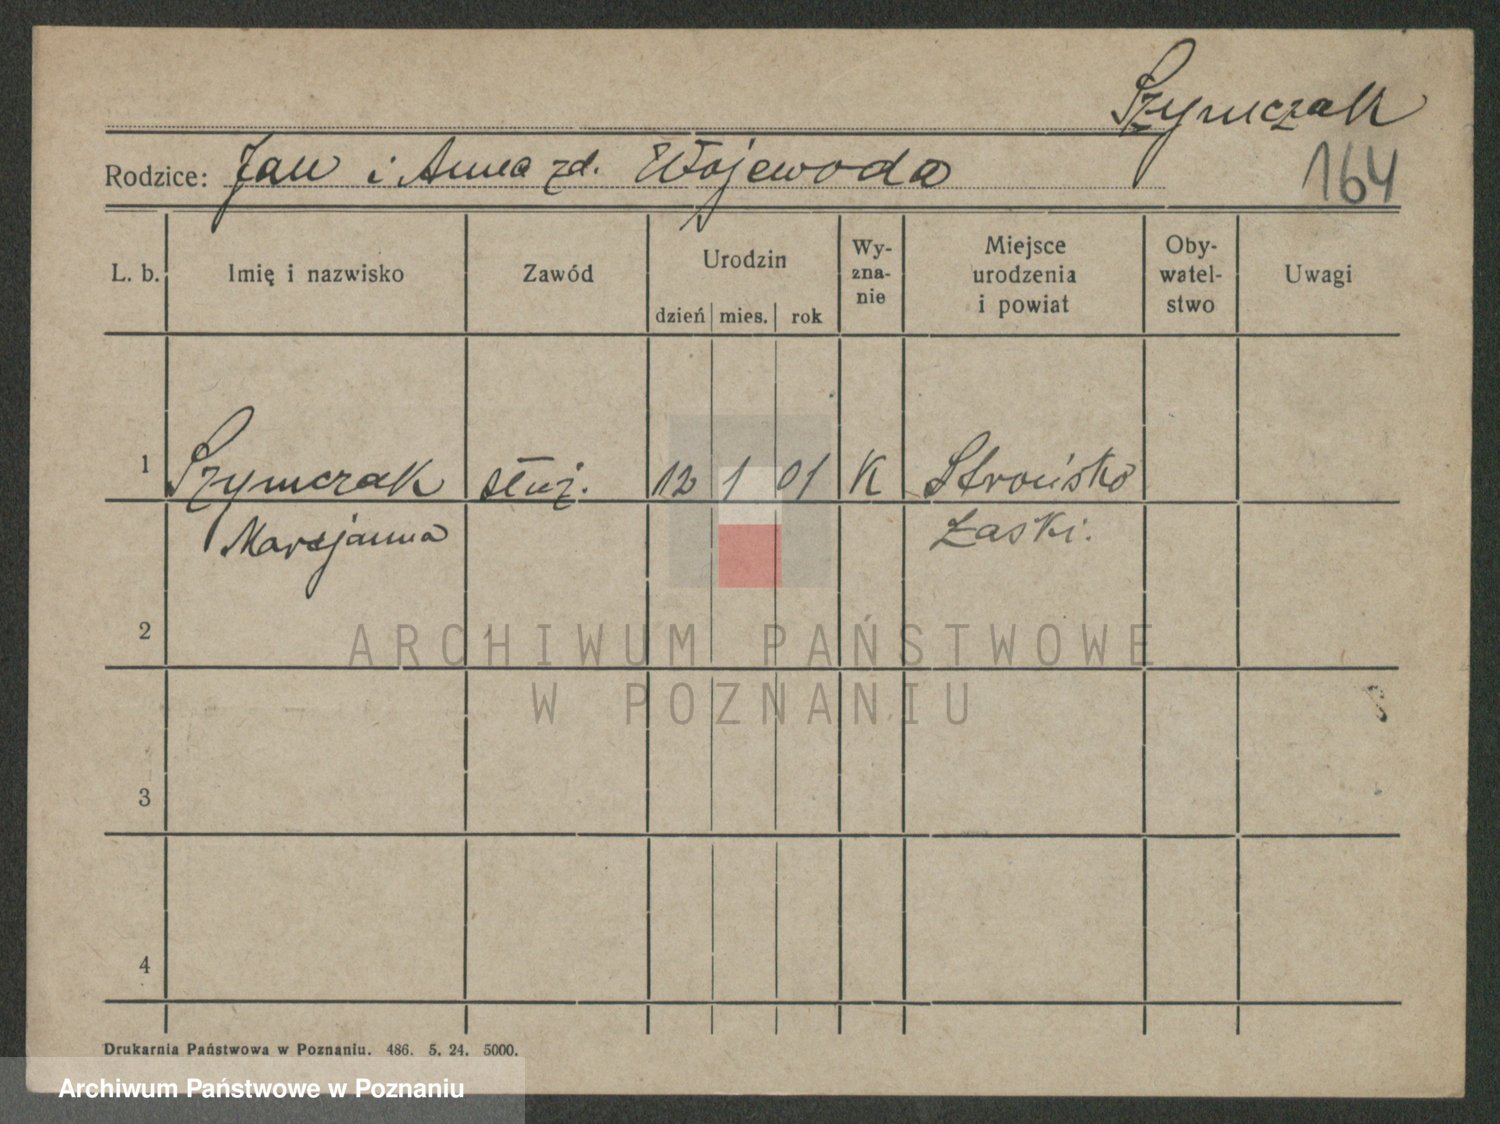 Szymczak
Rodzice: Jan i Anna zd. Wojewoda
164
L. b. Imię i nazwisko Zawód Urodzin dzień mies. rok Wy-
zna-
nie Miejsce
urodzenia
i powiat Oby-
watel-
stwo Uwagi
1 Szymczak służ. 12 1 01 K Strońsko
Marjanna Łaski.
2
3
4
ARCHIWUM PAŃSTWOWE
W POZNANIU
Drukarnia Państwowa w Poznaniu. 486. 5. 24. 5000.
Archiwum Państwowe w Poznaniu